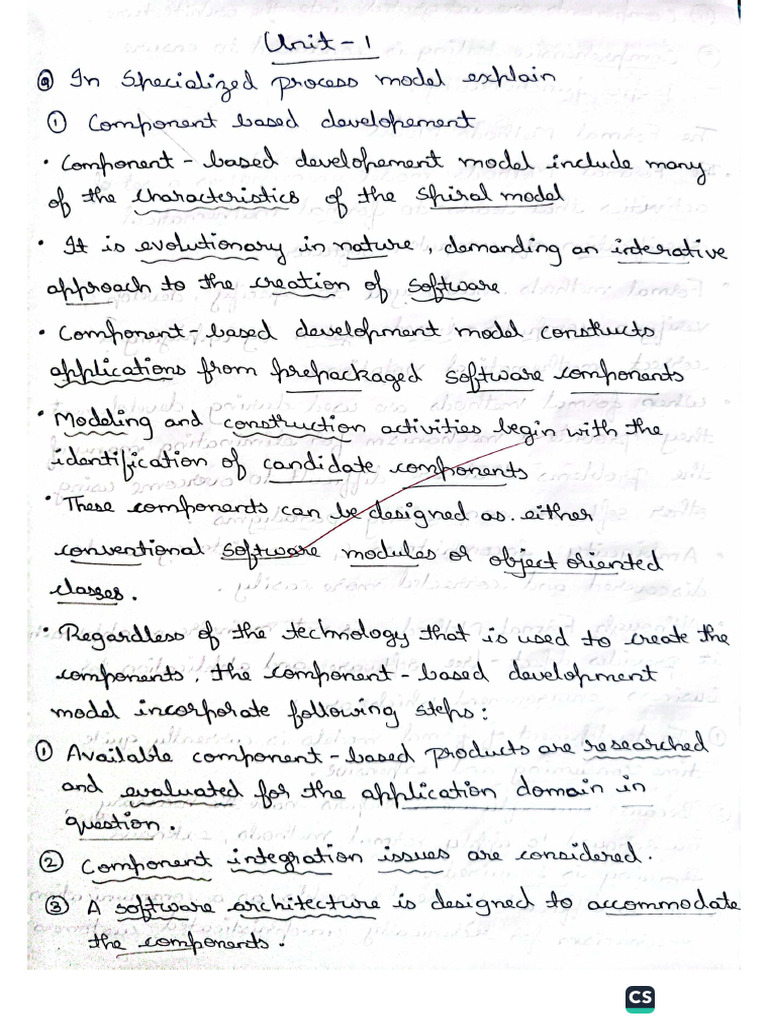 Unit - 1
Q In Specialized process model explain
① Component based developement
• Component - based developement model include many
of the characteristics of the spiral model
• It is evolutionary in nature, demanding an interative
approach to the creation of software.
• Component - based development model constructs
applications from prepackaged software components
• Modeling and construction activities begin with the
identification of candidate components
• These components can be designed as either
conventional software modules or object oriented
classes.
• Regardless of the technology that is used to create the
components, the component - based development
model incorporate following steps:
① Available component - based products are researched
and evaluated for the application domain in
question.
② Component integration issues are considered.
③ A software architecture is designed to accommodate
the components.
CS